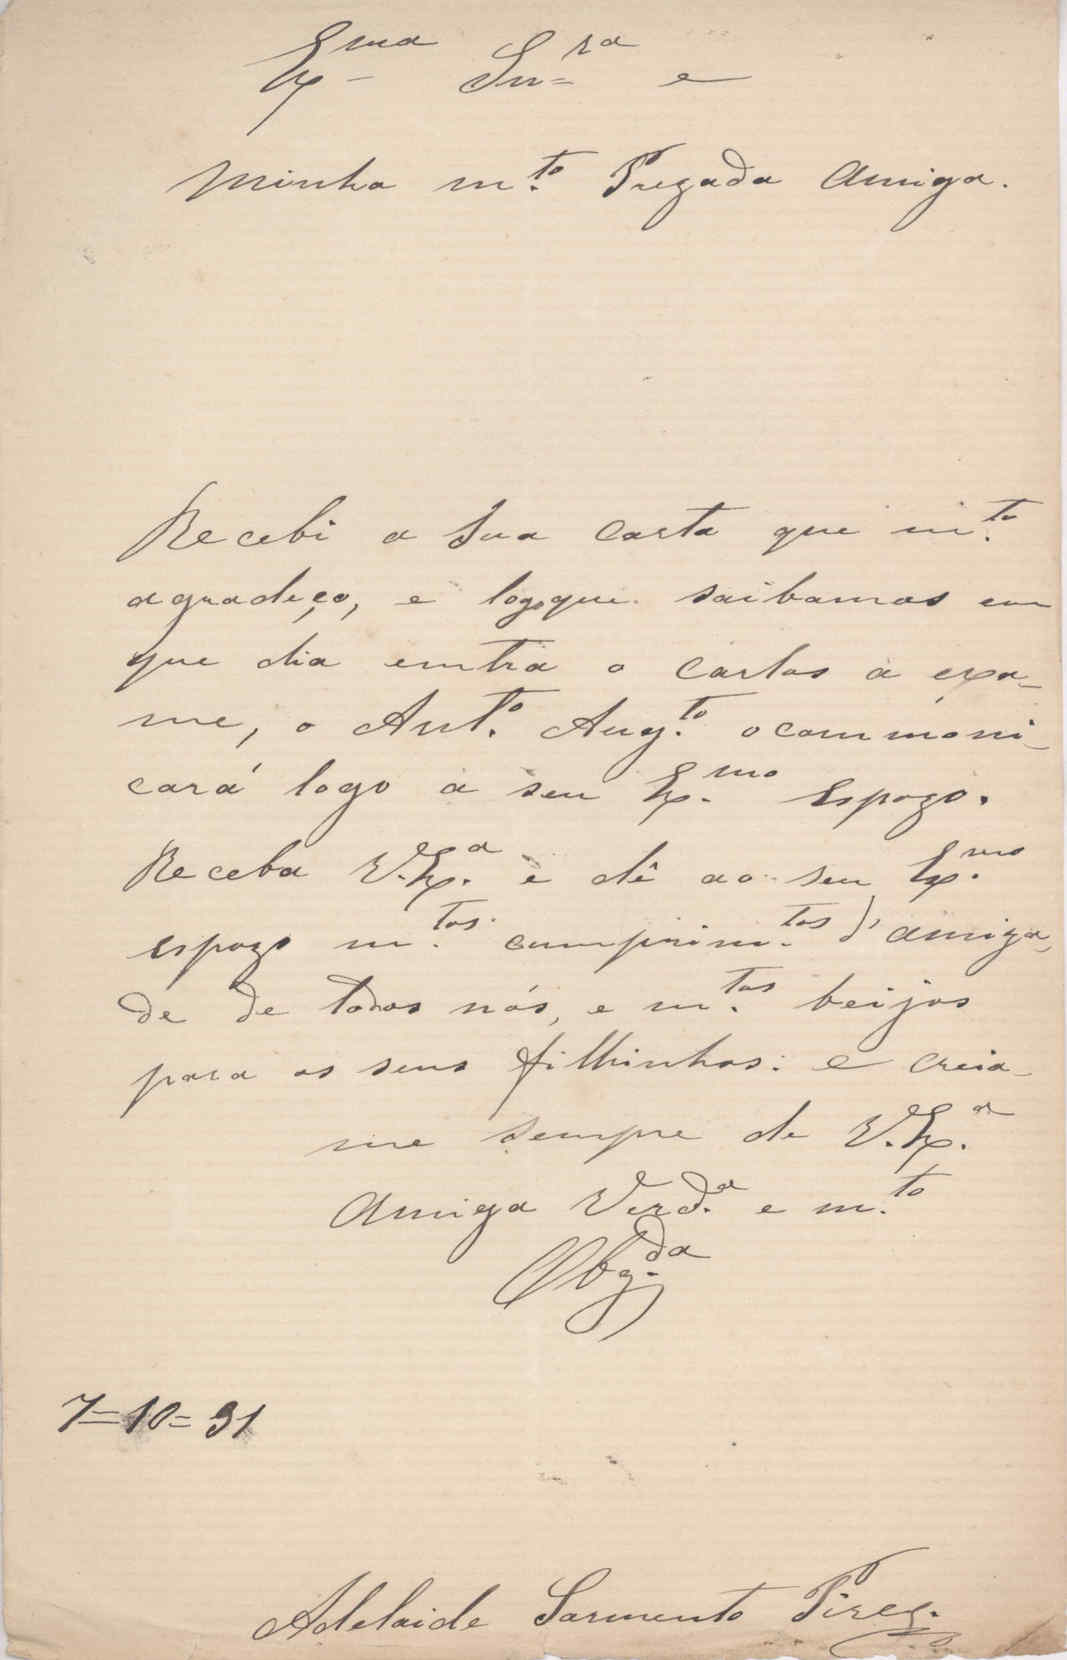 Ex.ma Snra e
Minha m.to Prezada Amiga.
Recebi a sua carta que m.to
agradeço, e logoque saibamos em
que dia emtra o Carlos a exa-
me, o Ant.o Aug.to o commoni-
cará logo a seu Ex.mo Espozo.
Receba V.Ex.a e dê ao seu Ex.mo
espozo m.tos cumprim.tos d'amiza-
de de todos nós, e m.tos beijos
para os seus filhinhos: e creia-
me sempre de V.Ex.a
Amiga Verd.a e m.to
Obg.da
7=10=91
Adelaide Sarmento Pires.